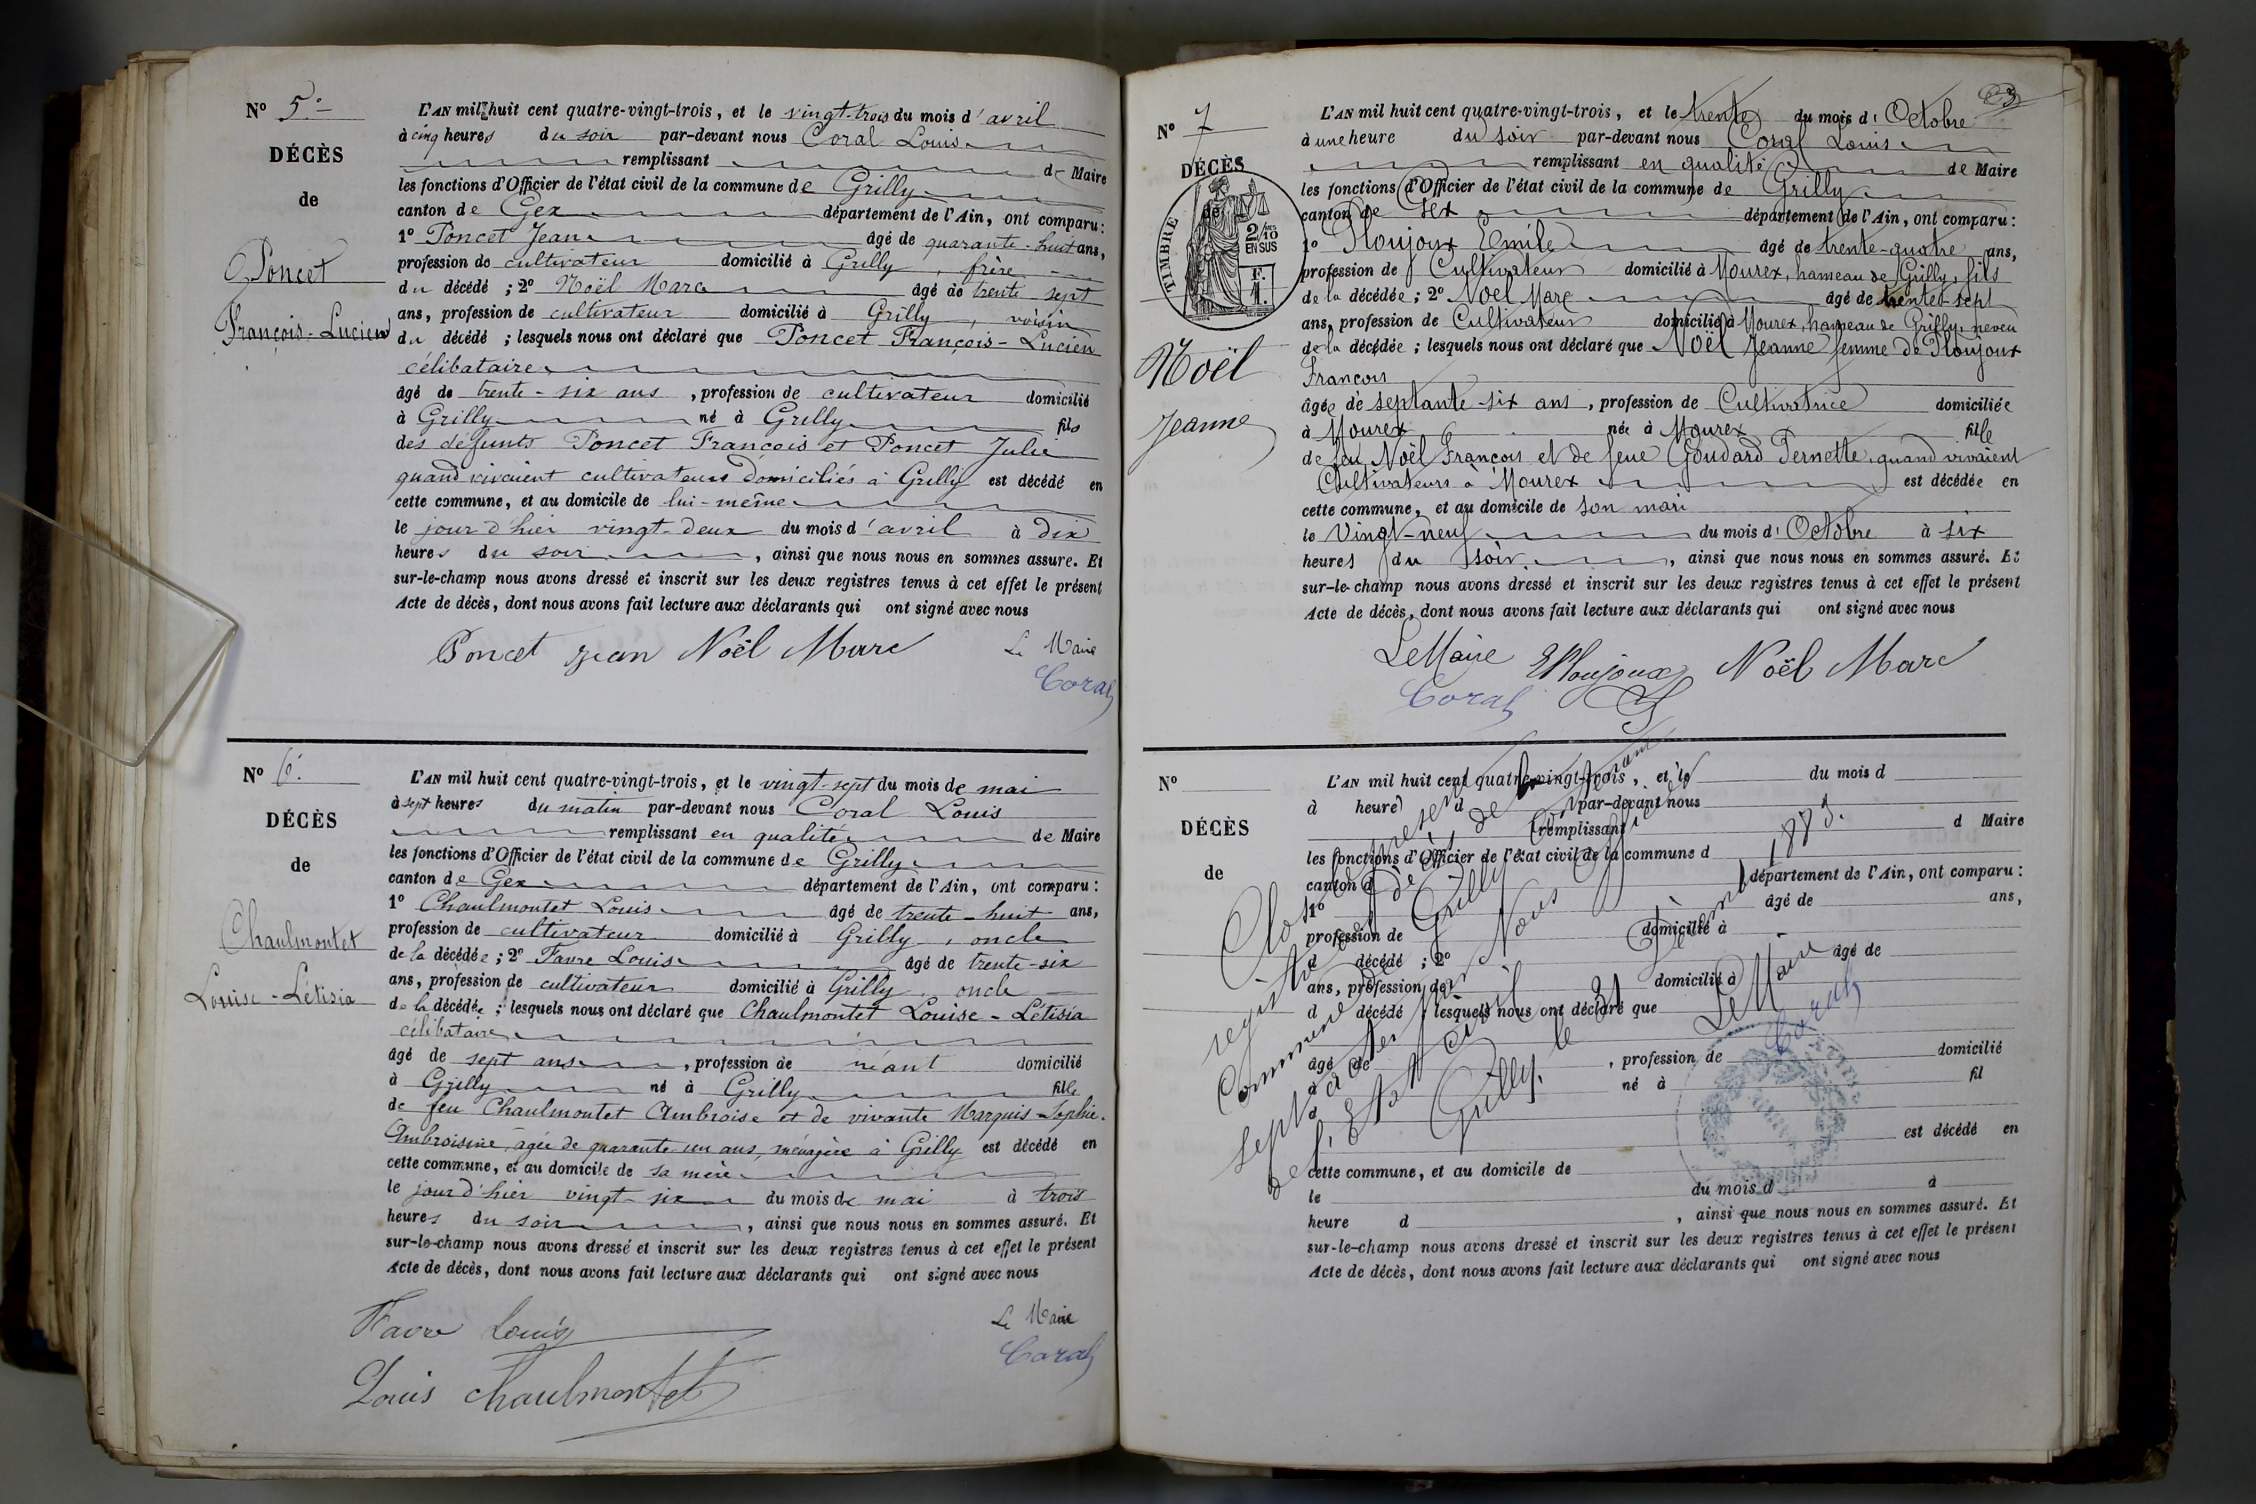 N° 5.
DÉCÈS
de
Poncet
François-Lucien
L'AN mil huit cent quatre-vingt-trois, et le vingt-trois du mois d'avril
à cinq heures du soir par-devant nous Coral Louis
remplissant de Maire
les fonctions d'Officier de l'état civil de la commune de Grilly
canton de Gex département de l'Ain, ont comparu:
1° Poncet Jean âgé de quarante-huit ans,
profession de cultivateur domicilié à Grilly, frère
du décédé ; 2° Noël Marc âgé de trente sept
ans, profession de cultivateur domicilié à Grilly, voisin
du décédé ; lesquels nous ont déclaré que Poncet François-Lucien
célibataire
âgé de trente-six ans, profession de cultivateur domicilié
à Grilly né à Grilly fils
des défunts Poncet François et Poncet Julie
quand vivaient cultivateurs domiciliés à Grilly est décédé en
cette commune, et au domicile de lui-même
le jour d'hier vingt-deux du mois d'avril à dix
heures du soir, ainsi que nous nous en sommes assuré. Et
sur-le-champ nous avons dressé et inscrit sur les deux registres tenus à cet effet le présent
Acte de décès, dont nous avons fait lecture aux déclarants qui ont signé avec nous
Poncet Jean Noël Marc Le Maire
Coral
N° 6.
DÉCÈS
de
Chaulmontet
Louise-Létisia
L'AN mil huit cent quatre-vingt-trois, et le vingt-sept du mois de mai
à sept heures du matin par-devant nous Coral Louis
remplissant en qualité de Maire
les fonctions d'Officier de l'état civil de la commune de Grilly
canton de Gex département de l'Ain, ont comparu:
1° Chaulmontet Louis âgé de trente-huit ans,
profession de cultivateur domicilié à Grilly, oncle
de la décédée ; 2° Favre Louis âgé de trente-six
ans, profession de cultivateur domicilié à Grilly, oncle
de la décédée ; lesquels nous ont déclaré que Chaulmontet Louise-Létisia
célibataire
âgé de sept ans, profession de néant domicilié
à Grilly né à Grilly fille
de feu Chaulmontet Ambroise et de vivante Marquis Sophie-
Ambroisine, âgée de quarante un ans, ménagère à Grilly est décédé en
cette commune, et au domicile de sa mère
le jour d'hier vingt-six du mois de mai à trois
heures du soir, ainsi que nous nous en sommes assuré. Et
sur-le-champ nous avons dressé et inscrit sur les deux registres tenus à cet effet le présent
Acte de décès, dont nous avons fait lecture aux déclarants qui ont signé avec nous
Favre Louis Le Maire
Louis Chaulmontet Coral
N° 7
DÉCÈS
de
TIMBRE
2/10
EN SUS
F.
1.
Noël
Jeanne
L'AN mil huit cent quatre-vingt-trois, et le trente du mois d'Octobre
à une heure du soir par-devant nous Coral Louis
remplissant en qualité de Maire
les fonctions d'Officier de l'état civil de la commune de Grilly
canton de Gex département de l'Ain, ont comparu:
1° Ploujoux Emile âgé de trente-quatre ans,
profession de Cultivateur domicilié à Mourex, hameau de Grilly, fils
de la décédée ; 2° Noël Marc âgé de trente-sept
ans, profession de Cultivateur domicilié à Mourex, hameau de Grilly, neveu
de la décédée ; lesquels nous ont déclaré que Noël Jeanne femme de Ploujoux
François
âgée de septante-six ans, profession de Cultivatrice domiciliée
à Mourex née à Mourex fille
de feu Noël François et de feue Goudard Pernette, quand vivaient
Cultivateurs à Mourex est décédée en
cette commune, et au domicile de son mari
le Vingt-neuf du mois d'Octobre à six
heures du soir, ainsi que nous nous en sommes assuré. Et
sur-le-champ nous avons dressé et inscrit sur les deux registres tenus à cet effet le présent
Acte de décès, dont nous avons fait lecture aux déclarants qui ont signé avec nous
Le Maire EPloujoux Noël Marc
Coral
N°
DÉCÈS
de
L'AN mil huit cent quatre-vingt-trois, et le du mois d
à heure d par-devant nous
remplissant d Maire
les fonctions d'Officier de l'état civil de la commune d
canton d département de l'Ain, ont comparu:
1° âgé de ans,
profession de domicilié à
d décédé ; 2° âgé de
ans, profession de domicilié à
d décédé ; lesquels nous ont déclaré que
âgé de , profession de domicilié
à né à fil
d
est décédé en
cette commune, et au domicile de
le du mois d à
heure d , ainsi que nous nous en sommes assuré. Et
sur-le-champ nous avons dressé et inscrit sur les deux registres tenus à cet effet le présent
Acte de décès, dont nous avons fait lecture aux déclarants qui ont signé avec nous
Clos le présent
registre des décès de la
Commune de Grilly
sept actes par Nous Officier
de l'Etat civil
Grilly, le 31 Décembre 1883.
Le Maire
Coral